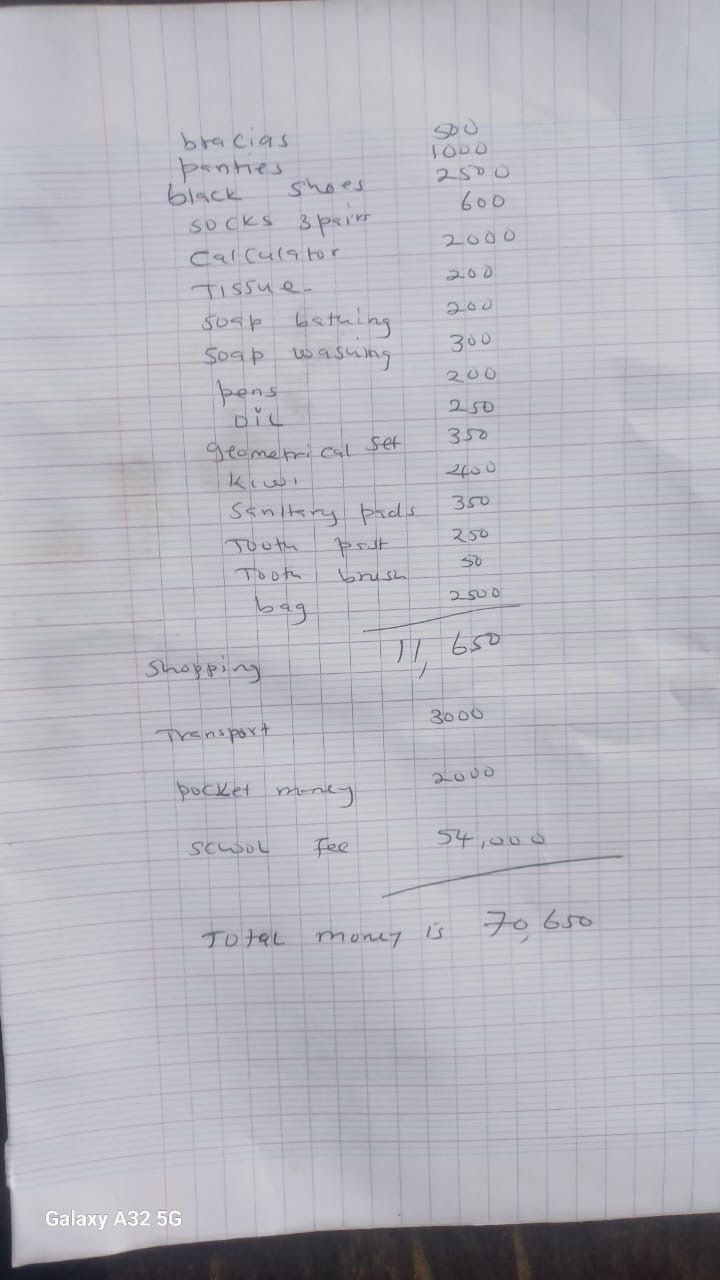 bracias 500
panties 1000
black shoes 2500
socks 3 pairs 600
Calculator 2000
Tissue 200
soap bathing 200
soap washing 300
pens 200
oil 250
geometrical set 350
kiwi 400
Sanitary pads 350
Tooth past 250
Tooth brush 50
bag 2500
Shopping 11,650
Transport 3000
pocket money 2000
School fee 54,000
Total money is 70,650
Galaxy A32 5G